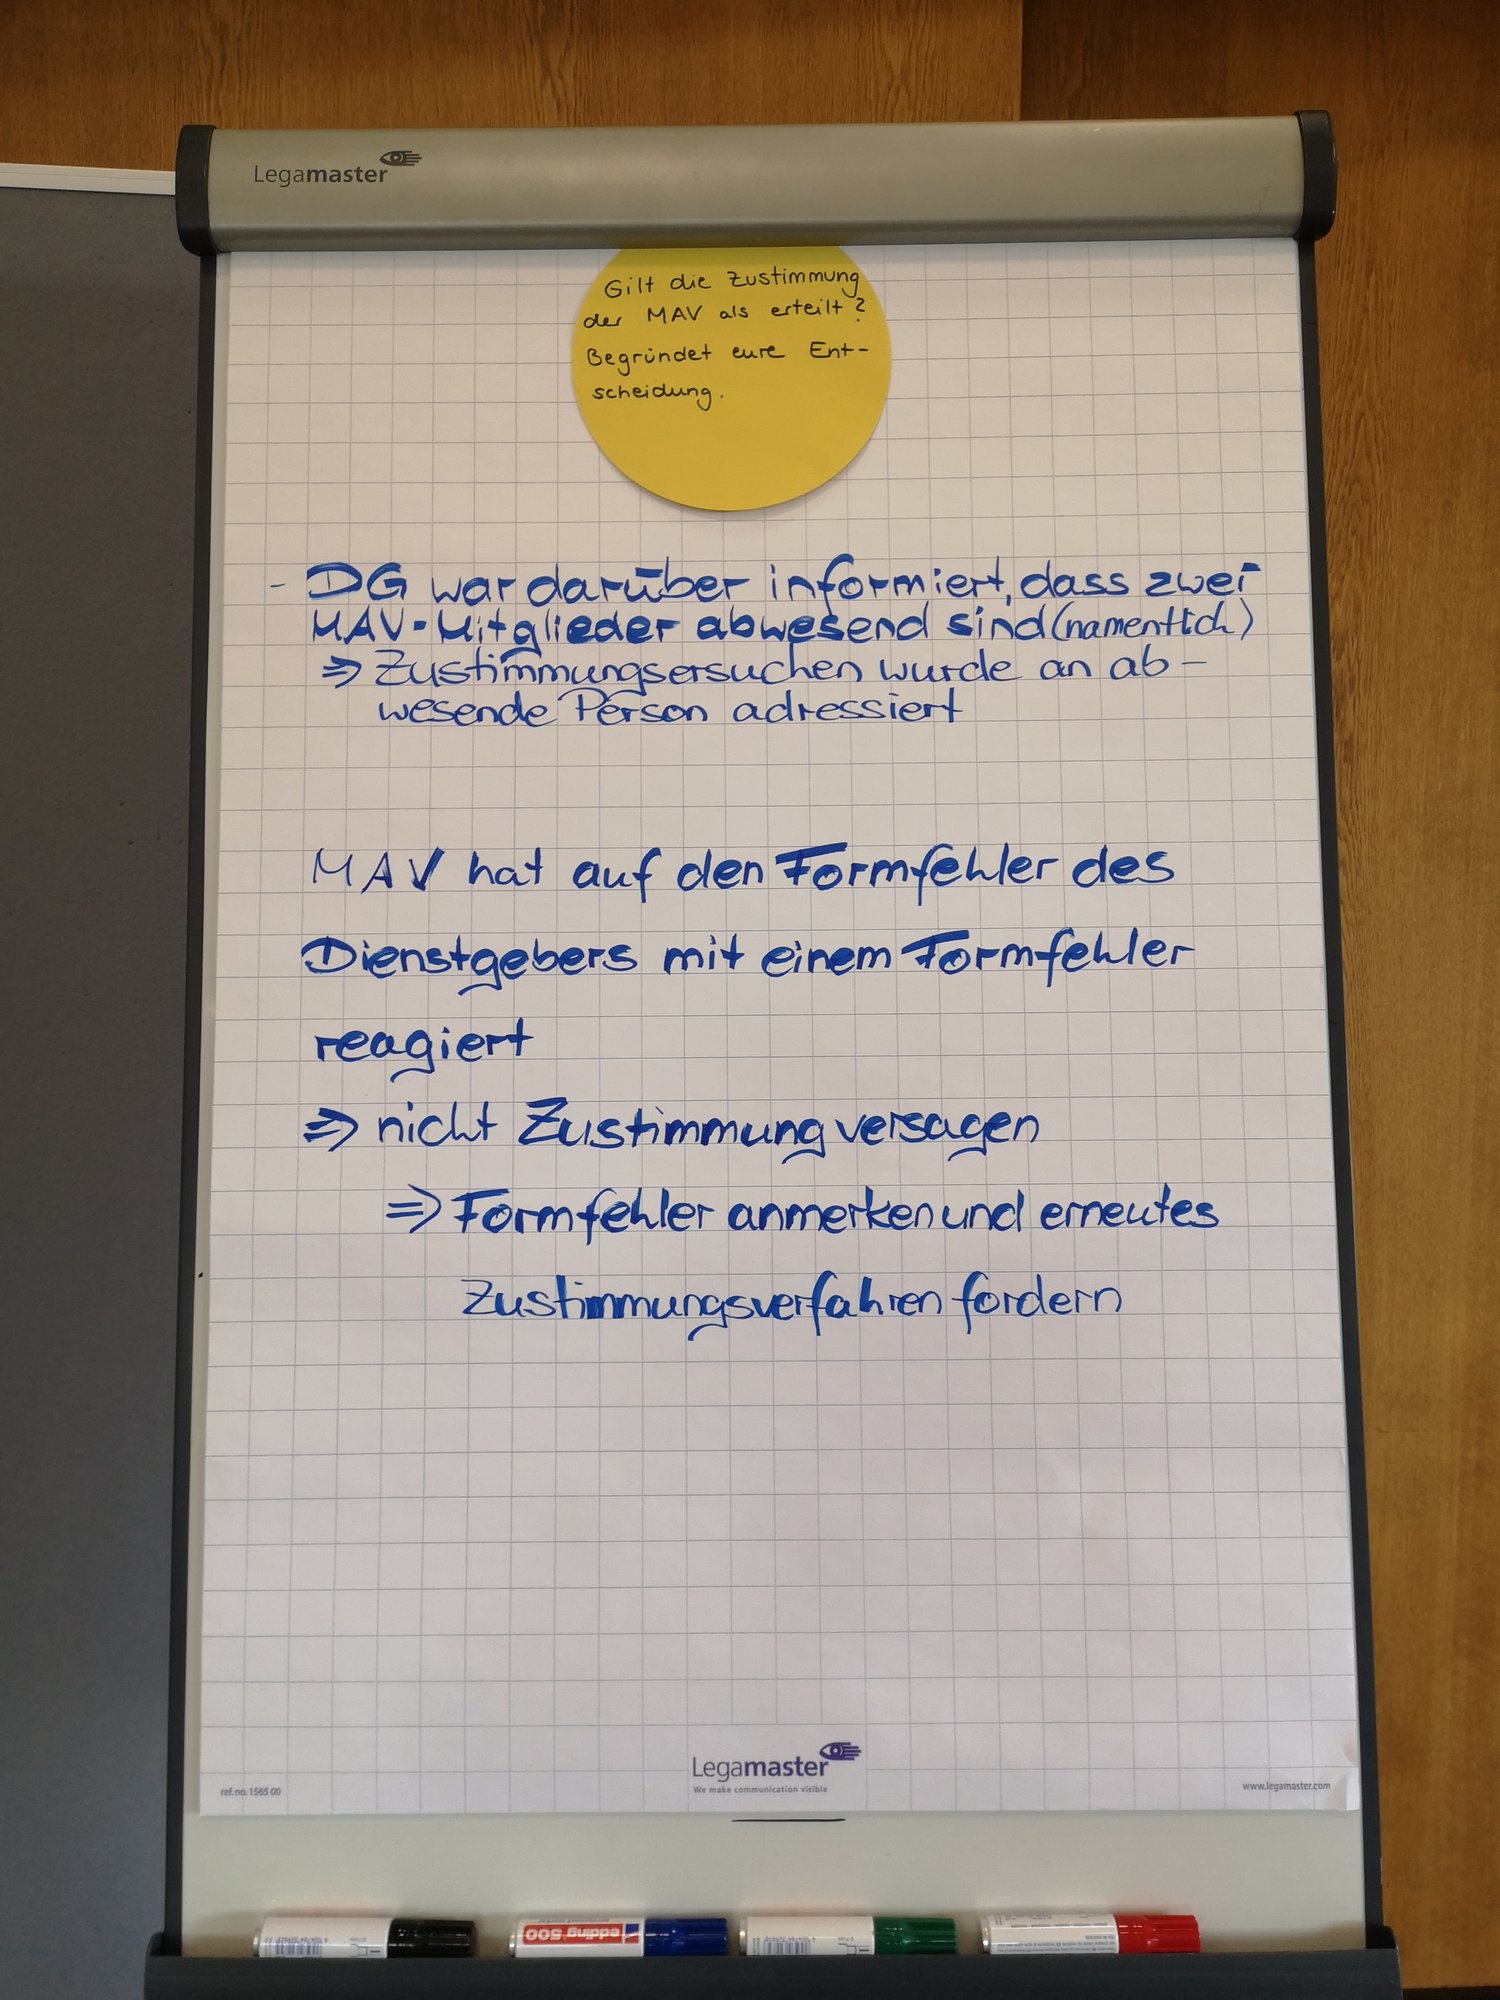 Legamaster
Gilt die Zustimmung
der MAV als erteilt?
Begründet eure Ent-
scheidung.
- DG war darüber informiert, dass zwei
MAV-Mitglieder abwesend sind (namentlich)
⇒ Zustimmungsersuchen wurde an ab-
wesende Person adressiert
MAV hat auf den Formfehler des
Dienstgebers mit einem Formfehler
reagiert
⇒ nicht Zustimmung versagen
⇒ Formfehler anmerken und erneutes
Zustimmungsverfahren fordern
Legamaster
We make communication visible
ref. no. 1565 00
www.legamaster.com
edding 500